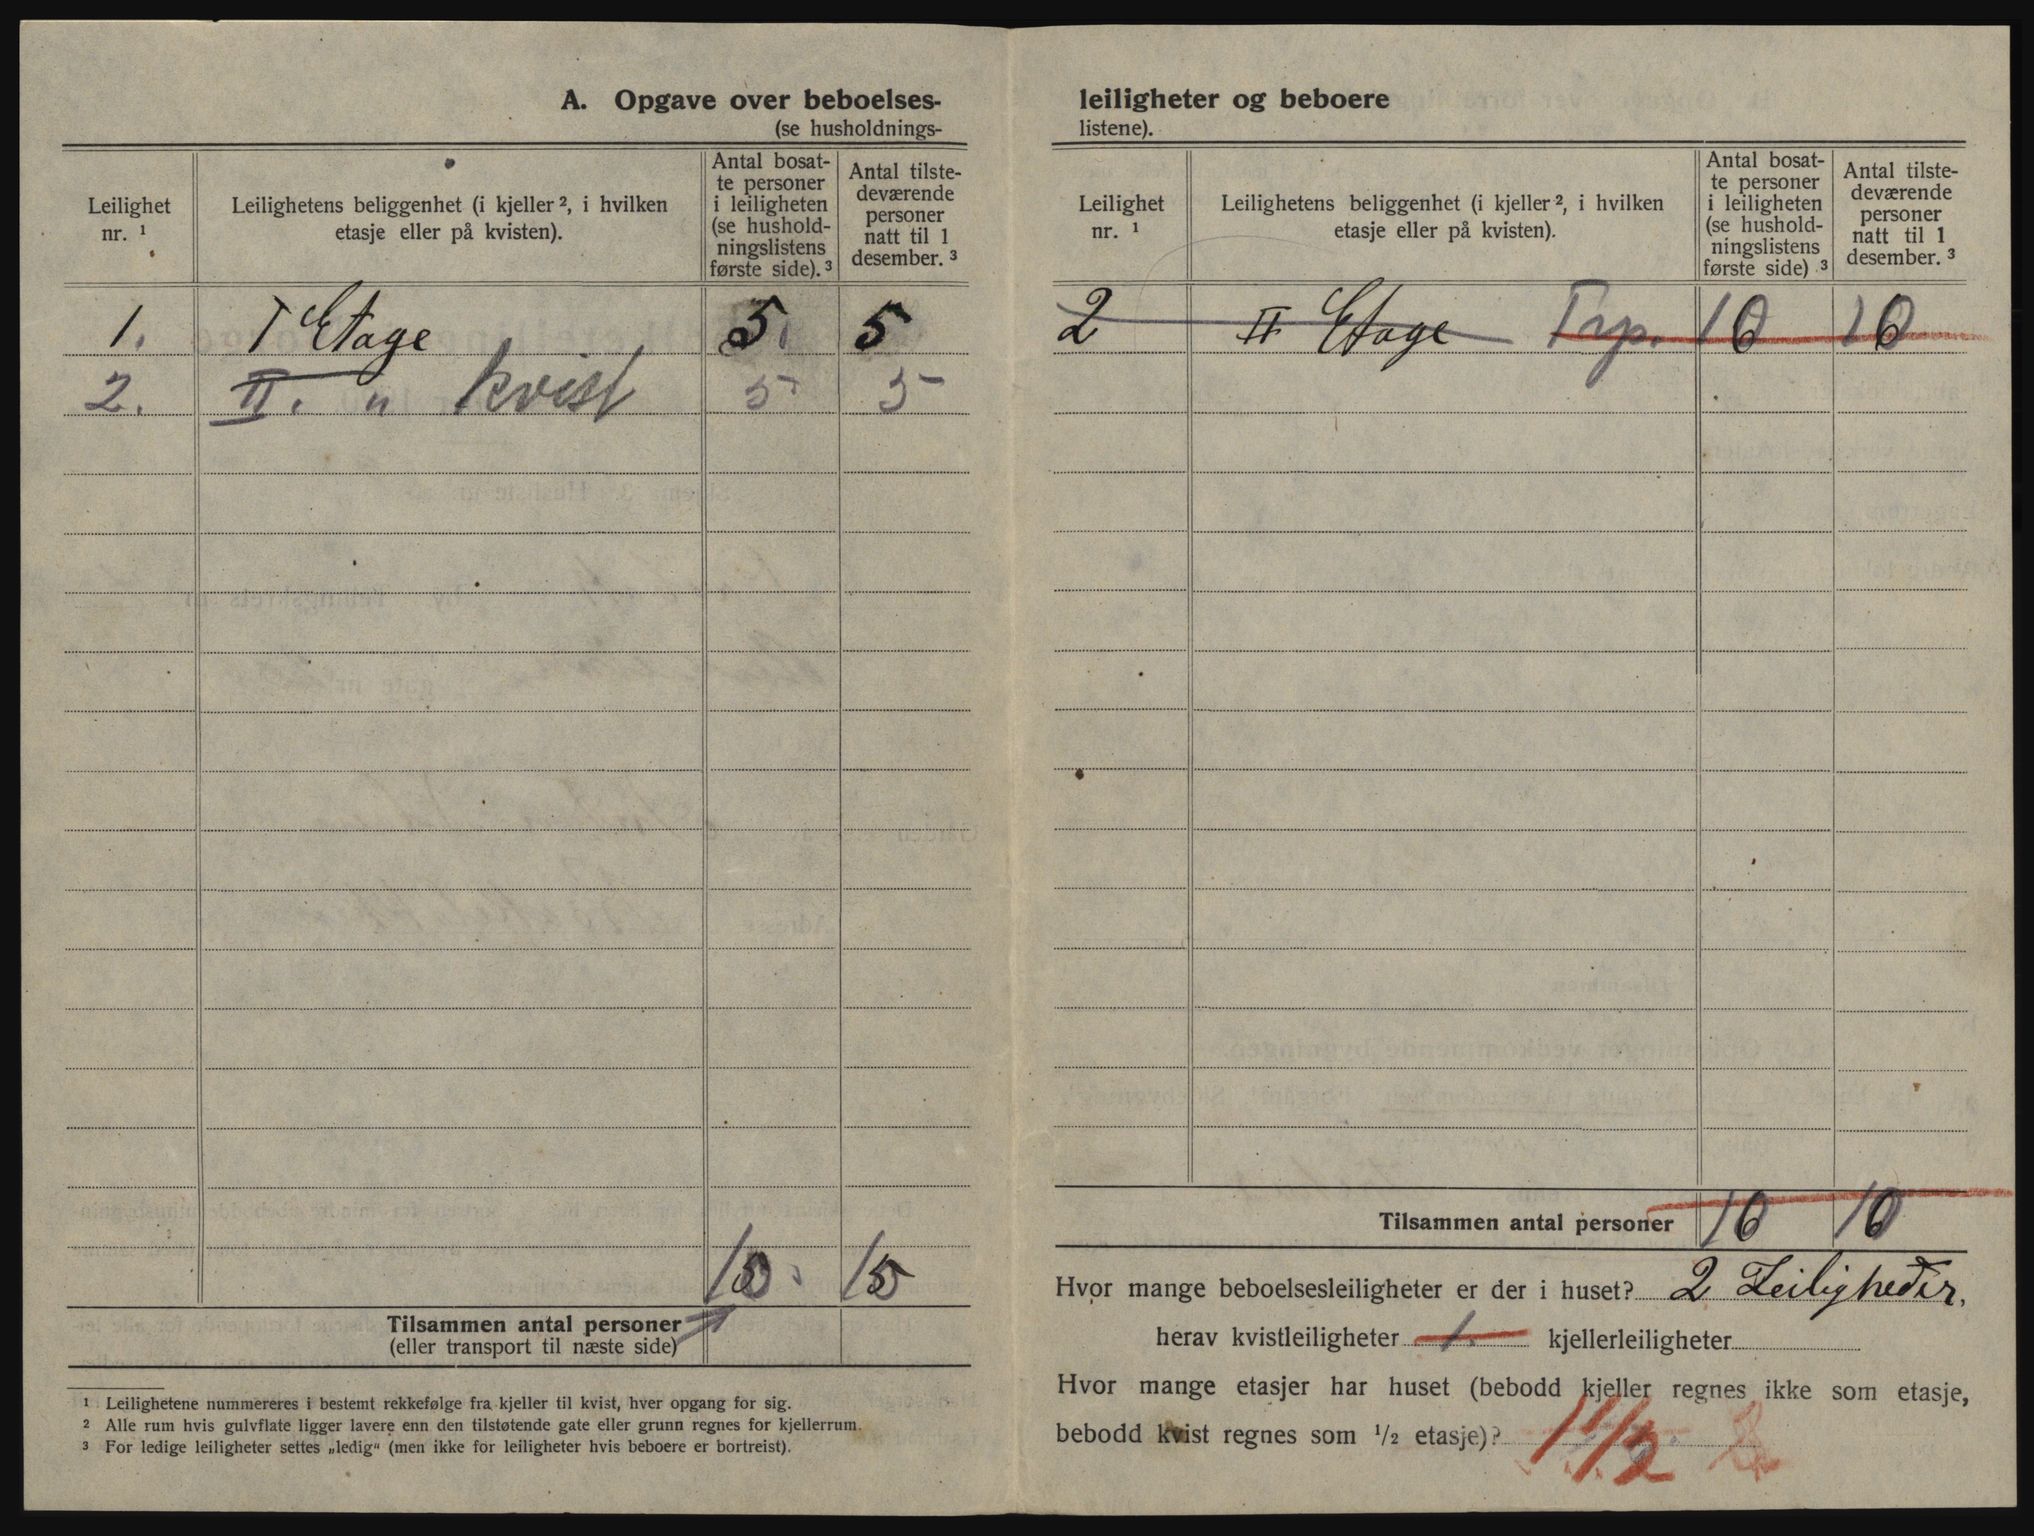 A. Opgave over beboelses-
(se husholdnings-
Leilighet
nr. ¹
Leilighetens beliggenhet (i kjeller ², i hvilken
etasje eller på kvisten).
Antal bosat-
te personer
i leiligheten
(se hushold-
ningslistens
første side). ³
Antal tilste-
deværende
personer
natt til 1
desember. ³
1. I Etage 5. 5
2. II. " kvist 5 5
10. 10
Tilsammen antal personer
(eller transport til næste side)
¹ Leilighetene nummereres i bestemt rekkefølge fra kjeller til kvist, hver opgang for sig.
² Alle rum hvis gulvflate ligger lavere enn den tilstøtende gate eller grunn regnes for kjellerrum.
³ For ledige leiligheter settes „ledig“ (men ikke for leiligheter hvis beboere er bortreist).
leiligheter og beboere
listene).
Leilighet
nr. ¹
Leilighetens beliggenhet (i kjeller ², i hvilken
etasje eller på kvisten).
Antal bosat-
te personer
i leiligheten
(se hushold-
ningslistens
første side) ³
Antal tilste-
deværende
personer
natt til 1
desember. ³
2 II Etage Trp. 10 10
Tilsammen antal personer 10 10
Hvor mange beboelsesleiligheter er der i huset? 2 Leiligheder.
herav kvistleiligheter 1. kjellerleiligheter
Hvor mange etasjer har huset (bebodd kjeller regnes ikke som etasje,
bebodd kvist regnes som ½ etasje)? 1 1/2